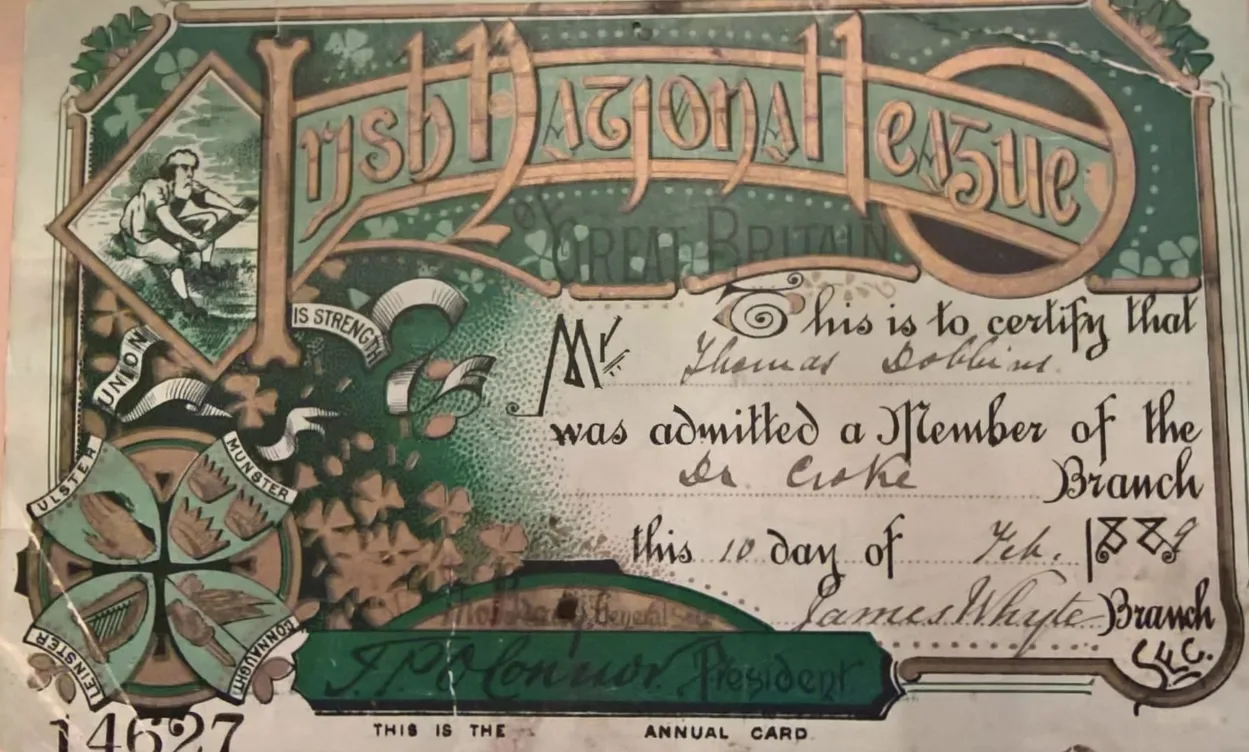 Irish National League
of GREAT BRITAIN
UNION IS STRENGTH
This is to certify that
Mr. Thomas Dobbins.
was admitted a Member of the
Dr. Croke Branch
this 10 day of Feb. 1889
James Whyte Branch
SEC.
ULSTER
MUNSTER
LEINSTER
CONNAUGHT
General Sec
T.P.O'Connor. President
14627
THIS IS THE ANNUAL CARD